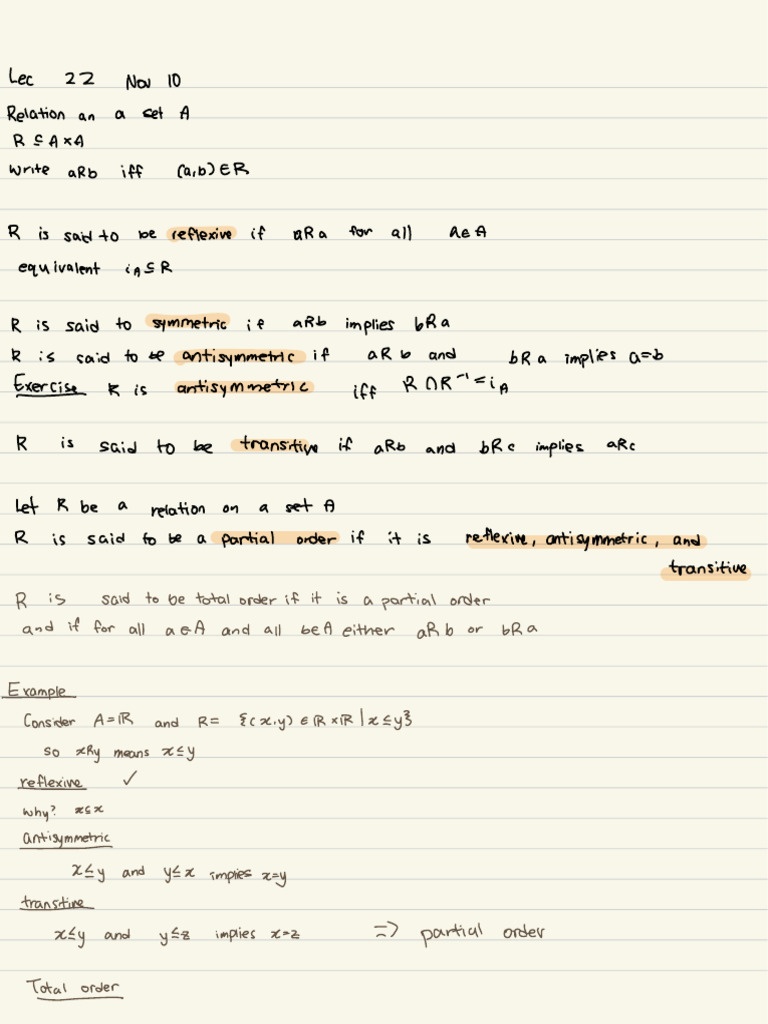 Lec 22 Nov 10
Relation an a set A
R ⊆ A×A
Write aRb iff (a,b)∈R
R is said to be reflexive if aRa for all a∈A
equivalent i_A⊆R
R is said to symmetric if aRb implies bRa
R is said to be antisymmetric if aRb and bRa implies a=b
Exercise R is antisymmetric iff R∩R⁻¹=i_A
R is said to be transitive if aRb and bRc implies aRc
Let R be a relation on a set A
R is said to be a partial order if it is reflexive, antisymmetric, and
transitive
R is said to be total order if it is a partial order
and if for all a∈A and all b∈A either aRb or bRa
Example
Consider A=ℝ and R= {(x,y)∈ℝ×ℝ|x≤y}
so xRy means x≤y
reflexive ✓
why? x≤x
antisymmetric
x≤y and y≤x implies x=y
transitive
x≤y and y≤z implies x=z => partial order
Total order